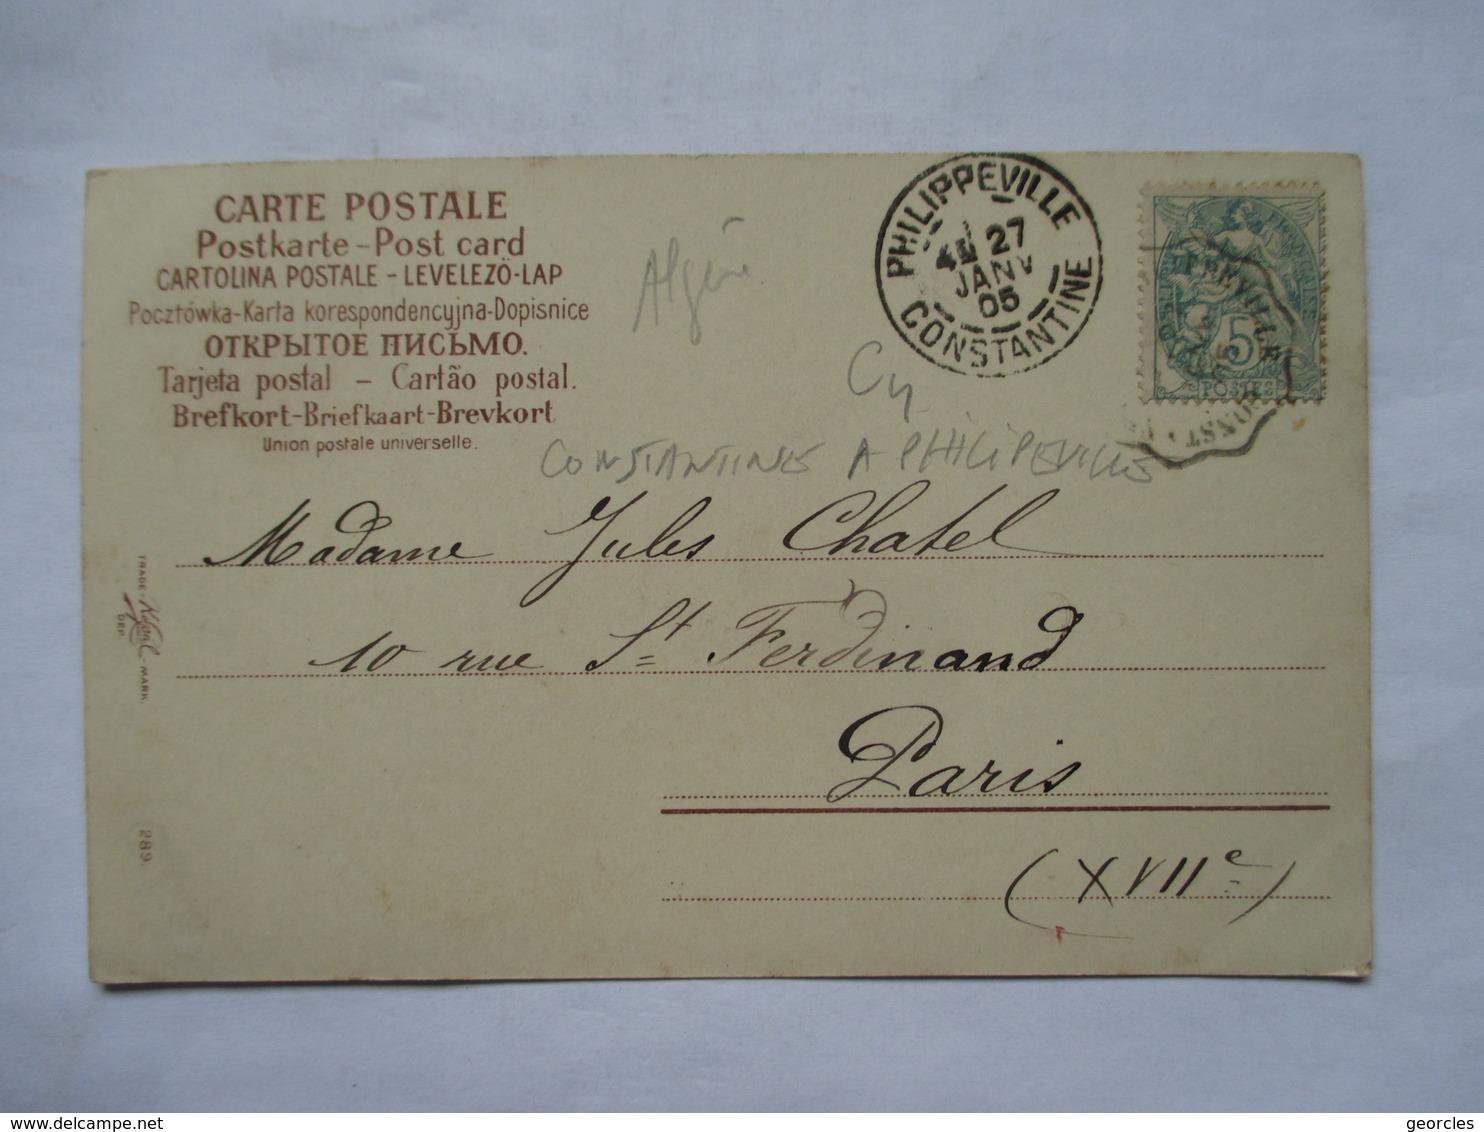 CARTE POSTALE
Postkarte - Post card
CARTOLINA POSTALE - LEVELEZÖ-LAP
Pocztówka-Karta korespondencyjna-Dopisnice
ОТКРЫТОЕ ПИСЬМО.
Tarjeta postal - Cartão postal.
Brefkort-Briefkaart-Brevkort
Union postale universelle.
Algérie
PHILIPPEVILLE
27
JANV
05
CONSTANTINE
5
POSTES
CONSTANTINE A PHILIPEVILLE
Madame Jules Chatel
10 rue St Ferdinand
Paris
(XVIIe)
TRADE-
DEP.
-MARK
289.
delcampe.net
georcles